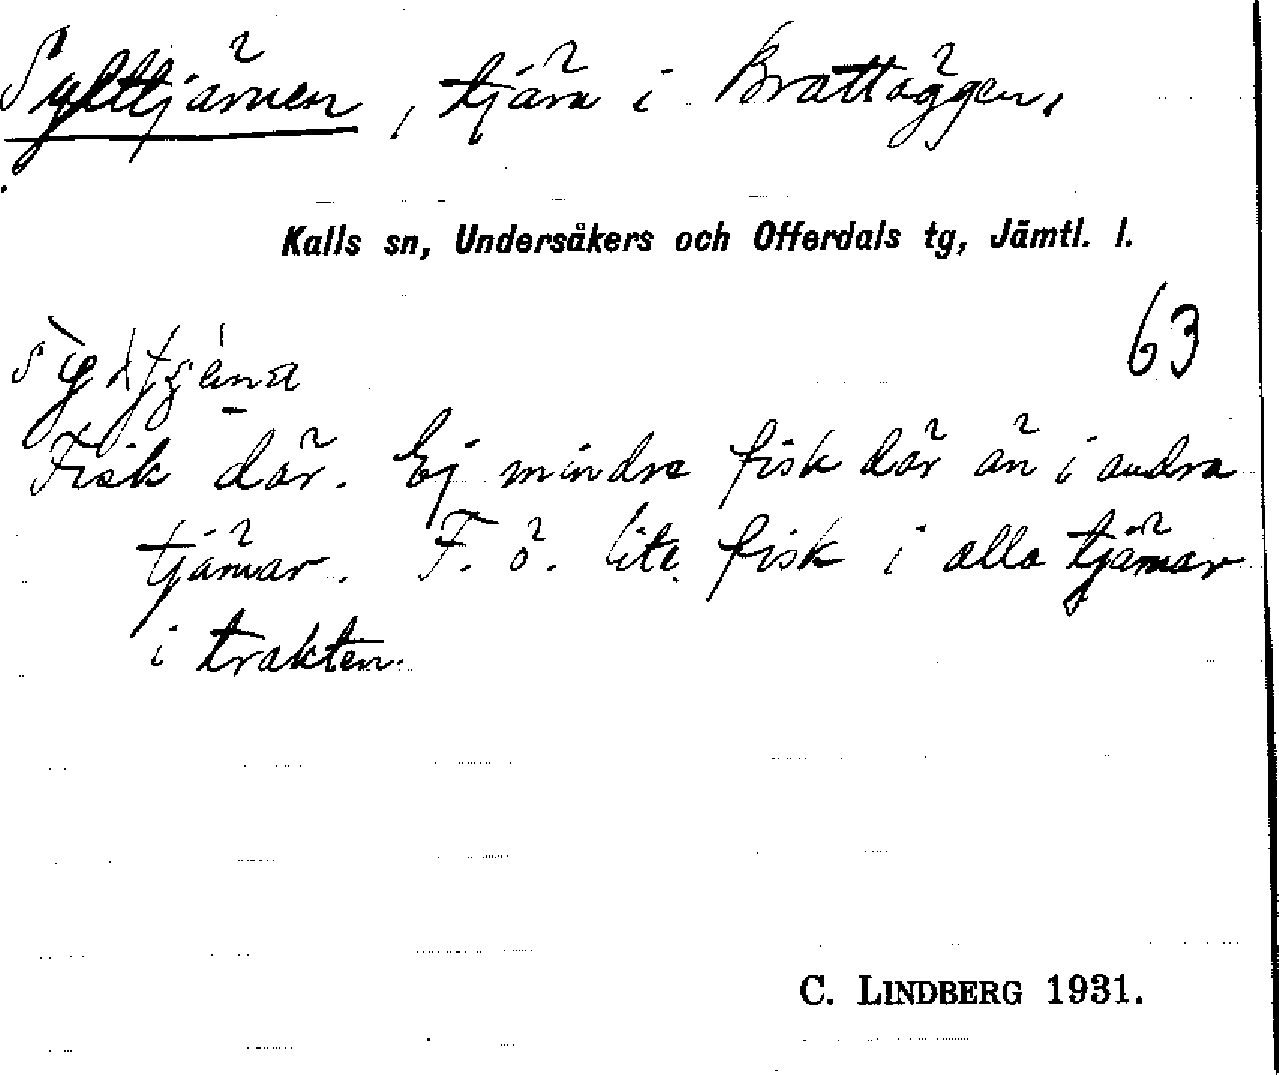 Sylttjärnen, tjärn i Brattäggen,
Kalls sn, Undersåkers och Offerdals tg, Jämtl. l.
63
Fisk där. Ej mindre fisk där än i andra
tjärnar. F. ö. lite fisk i alla tjärnar
i trakten.
C. LINDBERG 1931.